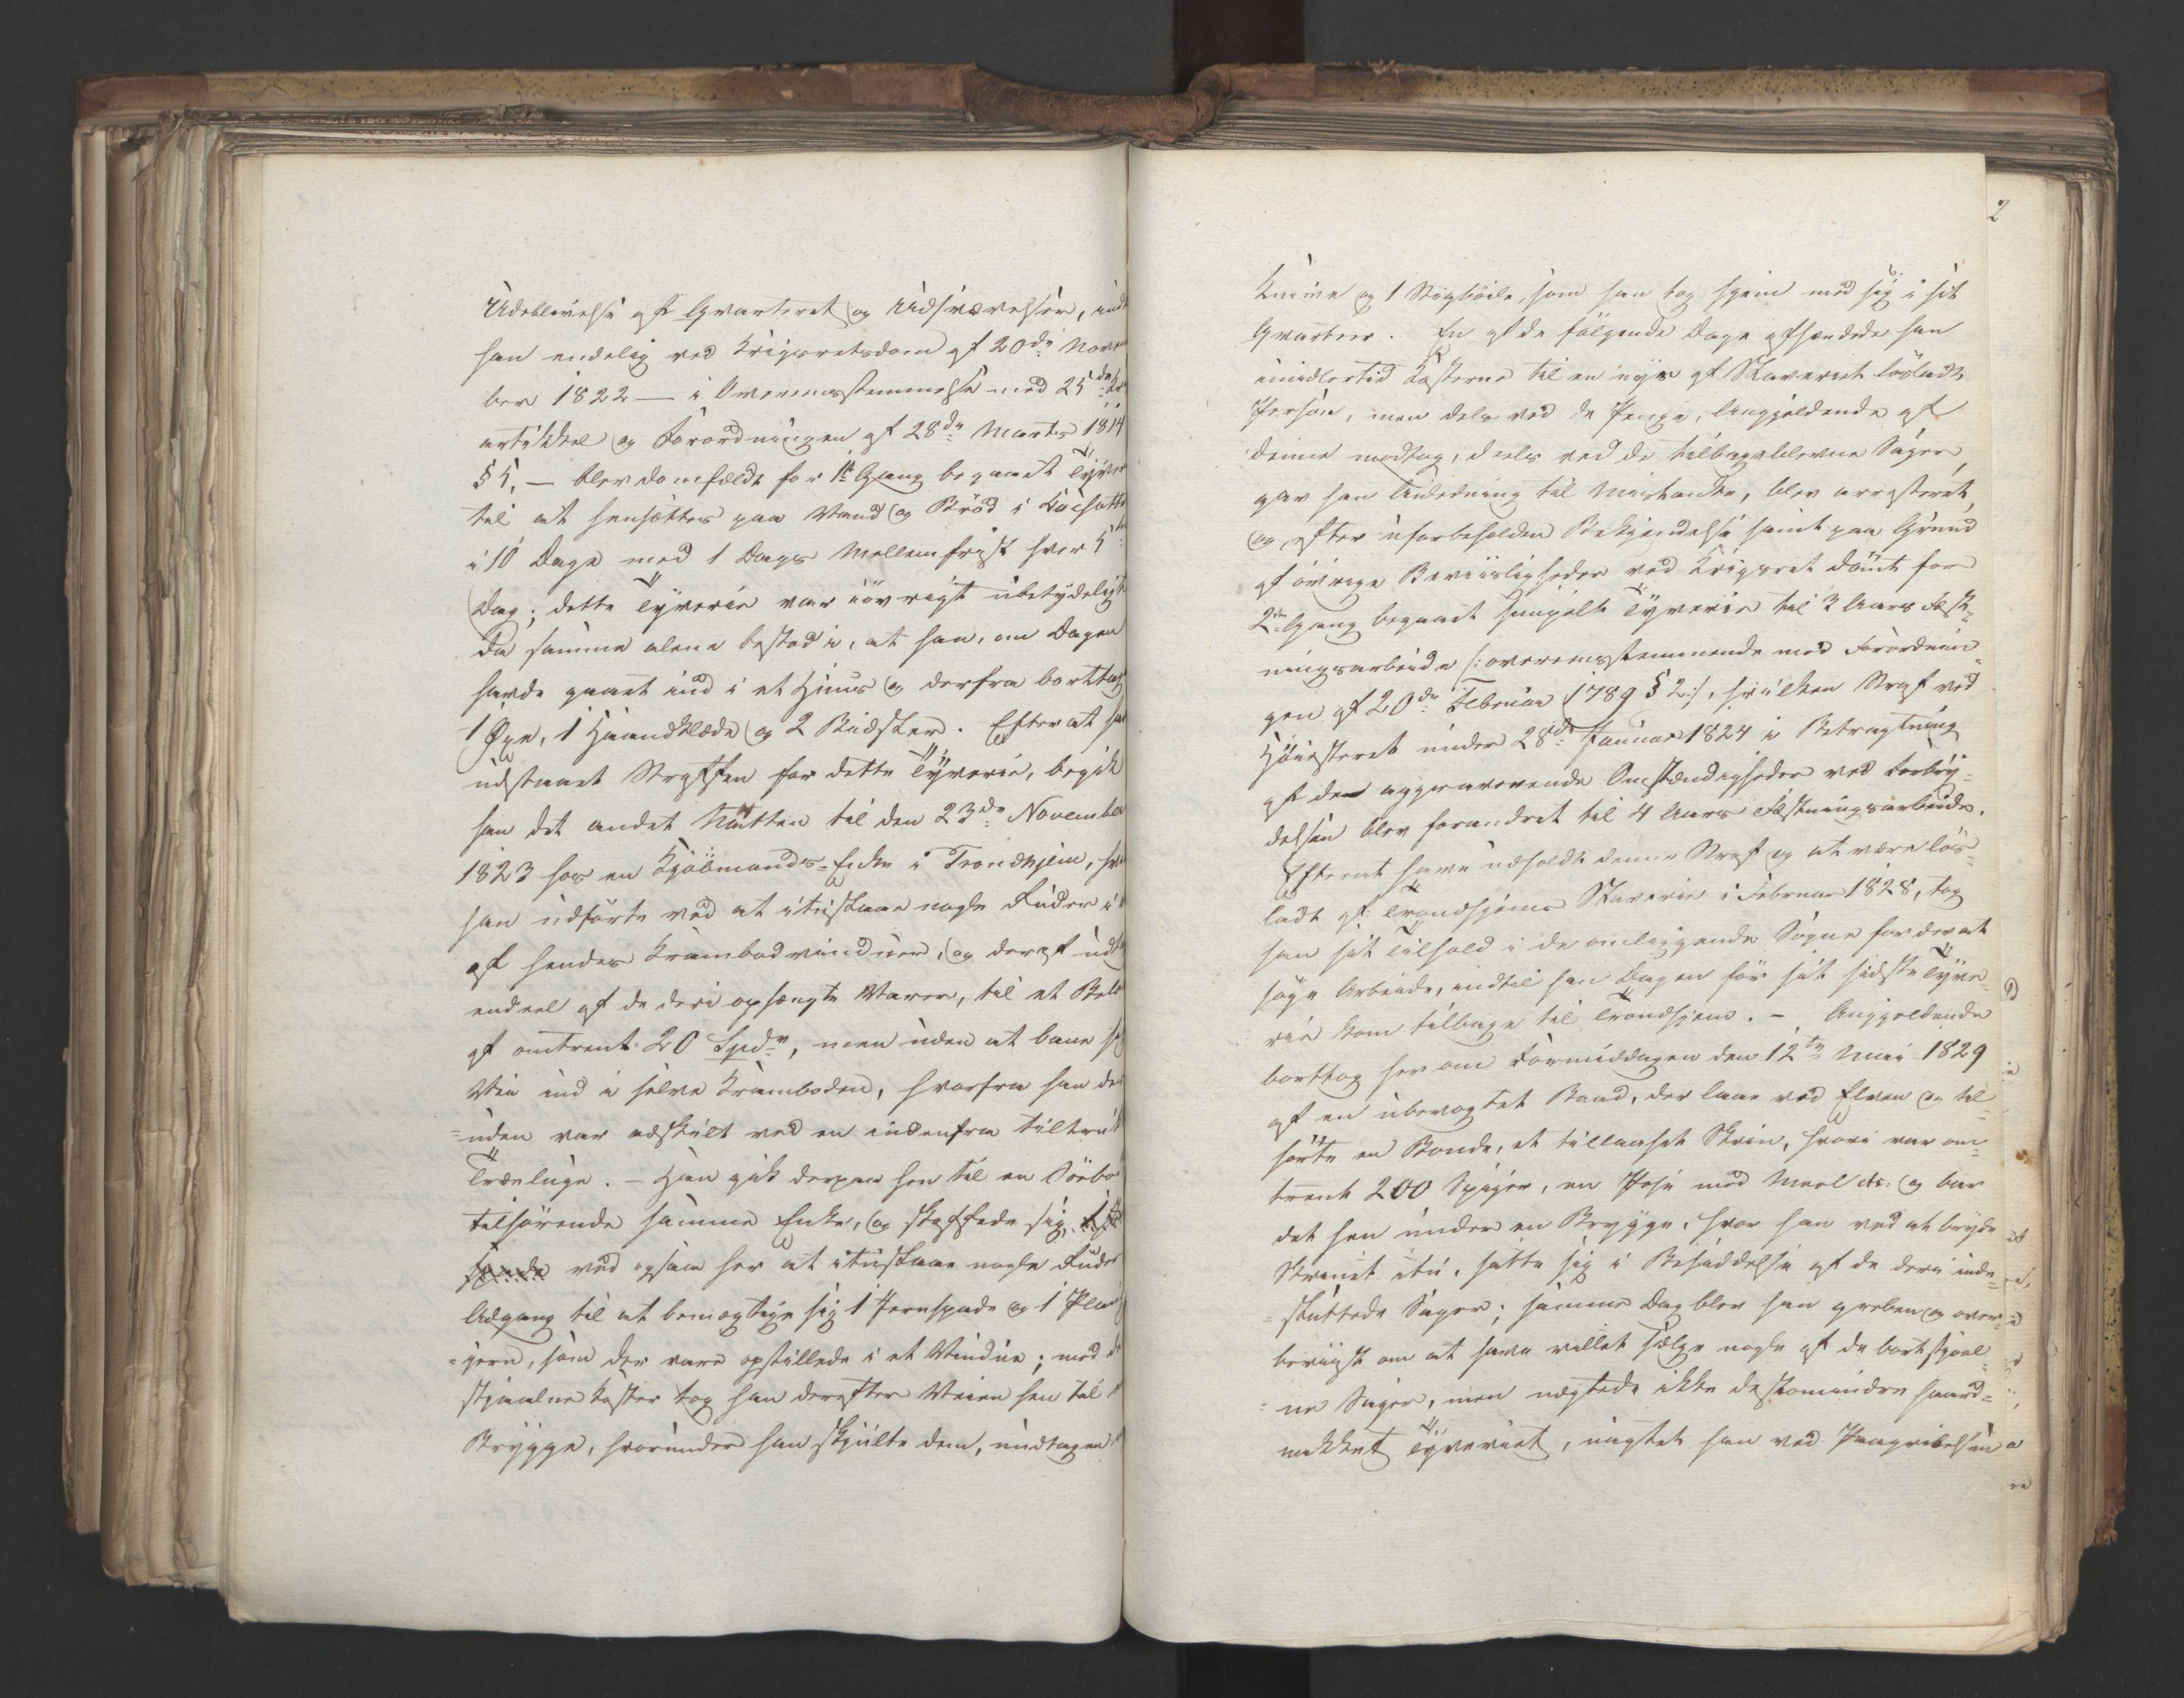 Udeblivelse af Qvarteret og Udsvævelser, indt
han endelig ved Krigsretsdom af 20de Novem
ber 1822 — i Overeensstemmelse med 25de Kr
artikkel og Forordningen af 28de Marts 1814
§ 5, — blev domfældt for 1ste Gang begaaet Tyver
til at hensættes paa Vand og Brød i Kachotte
i 10 Dage med 1 Dags Mellemfrist hver 5te
Dag; dette Tyverie var iøvrigt ubetydeligt
da samme alene bestod i, at han, om Dagen
havde gaaet ind i et Huus og derfra borttag
1 Øxe, 1 Haandklæde og 2 Bidsler. Efterat ha
udstaaet Straffen for dette Tyverie, begik
han det andet Natten til den 23de November
1823 hos en Kjøbmands-Enke i Trondhjem, hv
han udførte ved at ituslaae nogle Ruder i
af hendes Krambodvinduer, og deraf udt
endeel af de deri ophængte Varer, til et Belø
af omtrent 20 Spdr, men uden at bane sig
Vei ind i selve Kramboden, hvorfra han des
=uden var adskilt ved en indenfra tiltruk
Trælúge. — Han gik derpaa hen til en Søebo
tilhørende samme Enke, og skaffede sig,
ved ogsaa her at ituslaae nogle Ruder
Adgang til at bemægtige sig 1 Jernspade og 1 Plov
=jern, som der vare opstillede i et Vindue; med d
stjaalne Koster tog han derefter Veien hen til
Brygge, hvorunder han skjulte dem, undtagen
2
Knive og 1 Stigbøile, som han tog hjem med sig i sit
Qvarteer. En af de følgende Dage afhændede han
imidlertid Kosterne til en nys af Slaveriet løsladt
Person, men dels ved de Penge, Angjeldende af
denne modtog, deels ved de tilbageblevne Sager,
gav han Anledning til Mistanke, blev arresteret,
og efter uforbeholden Bekjendelse samt paa Grund
af øvrige Beviisligheder ved Krigsret dømt for
2den Gang begaaet simpelt Tyverie til 3 Aars Fæst-
ningsarbeide /: overeensstemmende med Forordnin-
gen af 20de Februar 1789 § 2 :/, hvilken Straf ved
Høiesteret under 28de Januar 1824 i Betragtning
af de aggraverende Omstændigheder ved Forbry=
delsen blev forandret til 4 Aars Fæstningsarbeide.
Efterat have udholdt denne Straf og at være løs=
ladt af Trondhjems Slaverie i Februar 1828, tog
han sit Tilhold i de omliggende Sogne for der at
søge Arbeide, indtil han Dagen før sit sidste Tyve=
rie kom tilbage til Trondhjem. — Angjeldende
borttog her om Formiddagen den 12te Mai 1829
af en ubevogtet Baad, der laae ved Elven og til=
hørte en Bonde, et tillaaset Skrin, hvori var om=
trent 200 Spiger, en Pose med Meel etc: og bar
det hen under en Brygge, hvor han ved at bryde
Skrinet itu, satte sig i Besiddelse af de deri inde=
=sluttede Sager; samme Dag blev han greben og over=
beviist om at have villet sælge nogle af de bortstjaal=
=ne Sager, men nægtede ikke destomindre haard=
nakket Tyveriet, uagtet han ved Paagribelsen